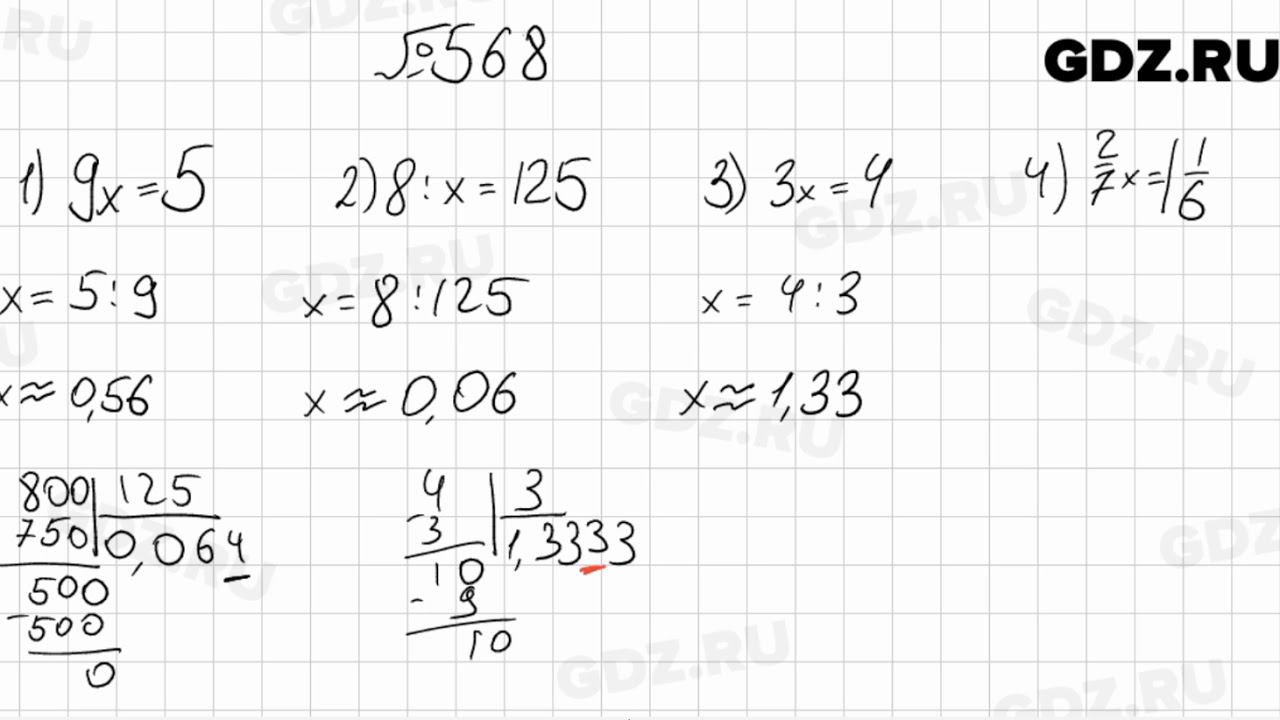 №568
GDZ.RU
1) 9x=5 2) 8:x=125 3) 3x=4 4) 2/7 x=1 1/6
x=5:9 x=8:125 x=4:3
x≈0,56 x≈0,06 x≈1,33
800 | 125
750 | 0,064
500
-500
0
4 | 3
-3 | 1,3333
10
- 9
10